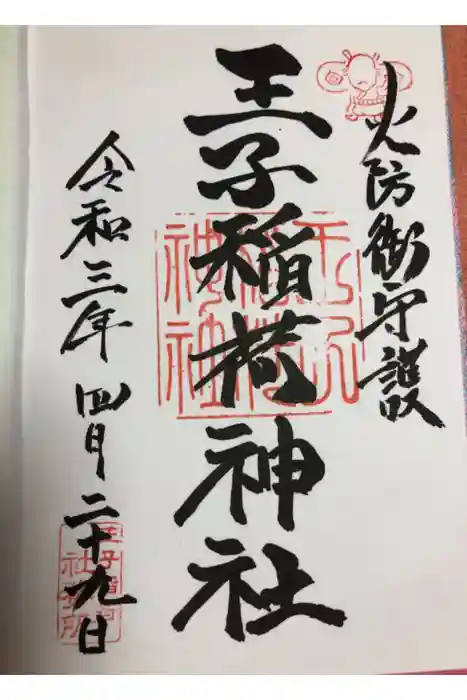 火防御守護
王子稲荷神社
令和三年四月二十九日